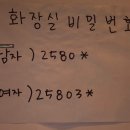 화장실 비밀번호
남자 ) 2580*
여자 ) 25803*